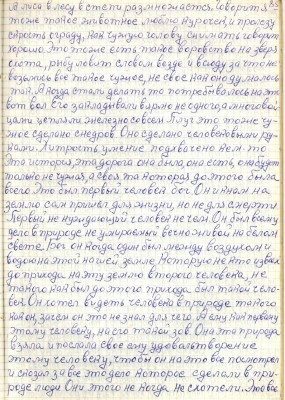 А лиса в лесу в степи размножается говорится
тоже такое животное люблю курочек, и пролезу
скрозь ограду, как чужую голову снимать говорит
хорошо. Это тоже есть такое воровство на зверя
охота, рыбу ловит словом везде и всюду за что не
возьмись все такое чужое, не свое как оно думалось
так. А когда стали делать то потребовалось на это
вот вол Его завладевали ярмо не одного, а многовой
цепями железно совсем Плуг это тоже чу-
жое сделано с недров Оно сделано человековыми ру-
ками. Хитрость умение подкачено кем то
Эта история, эта дорога она была, она есть, она будет
только не чужая, а своя та которая до этого была
всего Это был первый человек бог. Он и Адам на
землю сам пришел для жизни, но не для смерти.
Первый не нуждающий человек не чем Он был всему
дело в природе не умираемый вечно живой на белом
свете. Бог он когда один был между воздухом и
водою на этой нашей земле, которую не кто изведал
до прихода на эту землю второго человека, не
такого как был до этого прихода был такой чело-
век. Он хотел видеть человека в природе такого
как он, зачем он это не знал для чего. А ему как первому
этому человеку, на его такой зов. Она эта природа
взяла и послала свое ему удовольствие
этому человеку, чтобы он на это все посмотрел
и сказал за все это дело которое сделали в при-
роде люди Они этого не когда не смотели. Это все